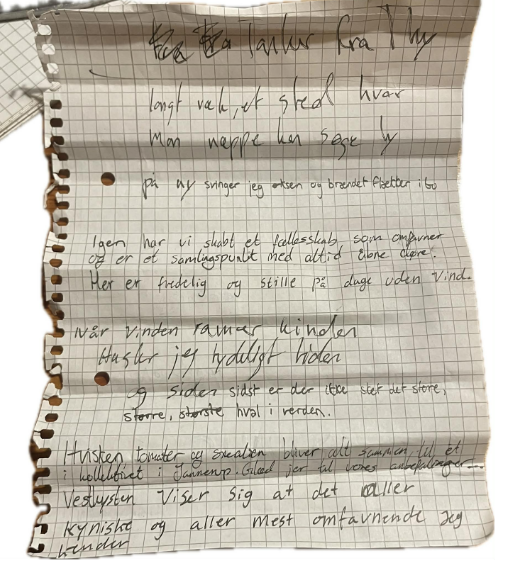 Tanker fra Thy
langt væk, et sted hvor
Man næppe kan søge ly
på ny svinger jeg øksen og brændet flætter i to
Igen har vi skabt et fællesskab, som omfavner
og er et samlingspunkt med altid åbne døre.
Her er fredelig og stille på dage uden vind.
Når vinden rammer kinden
Husker jeg tydeligt tiden
og siden sidst er der ikke sket det store,
større, største hval i verden.
tomater og bliver alt sammen til et
i kollektivet i Jannerup. Glæd jer til vores anbefalinger
Vestkysten viser sig at det aller
kyniske og aller mest omfavnende jeg
kender